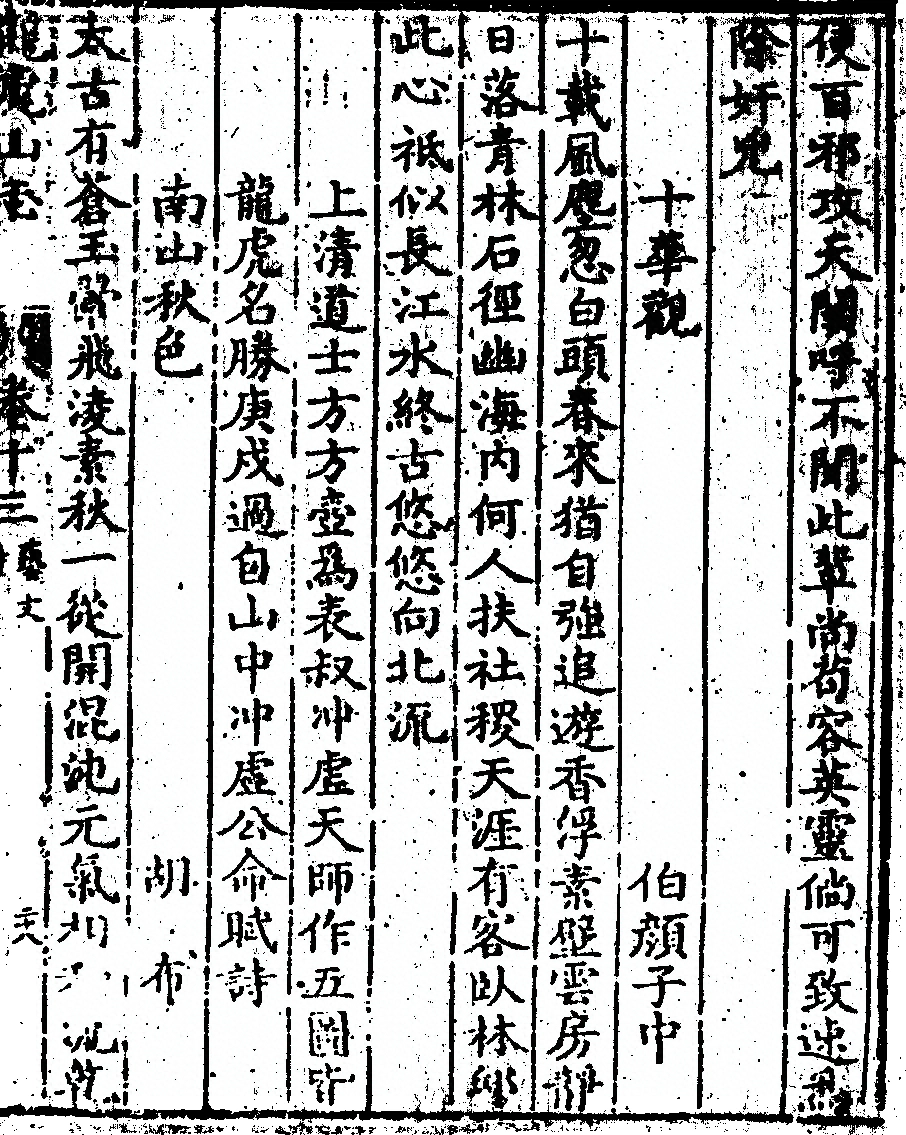 使百邪攻天關呼不聞此輩尚苟容英靈倘可致速
除奸兇
十華觀 伯顏子中
十載風塵忽白頭春來猶自強追遊香浮素壁雲房靜
日落青林石徑幽海內何人扶社稷天涯有客臥林
此心祗似長江水終古悠悠向北流
上清道士方方壺為表叔冲虛天師作五圖皆
龍虎名勝庚戌過自山中冲虛公命賦詩
南山秋色 胡布
太古有蒼玉 飛淩素秋一從開混沌元氣
龍虎山志 卷十三 藝文 二十八